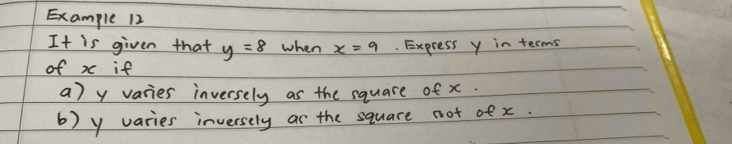 Example 12
It is given that y = 8 when x = 9 . Express y in terms
of x if
a) y varies inversely as the square of x .
b) y varies inversely as the square root of x .